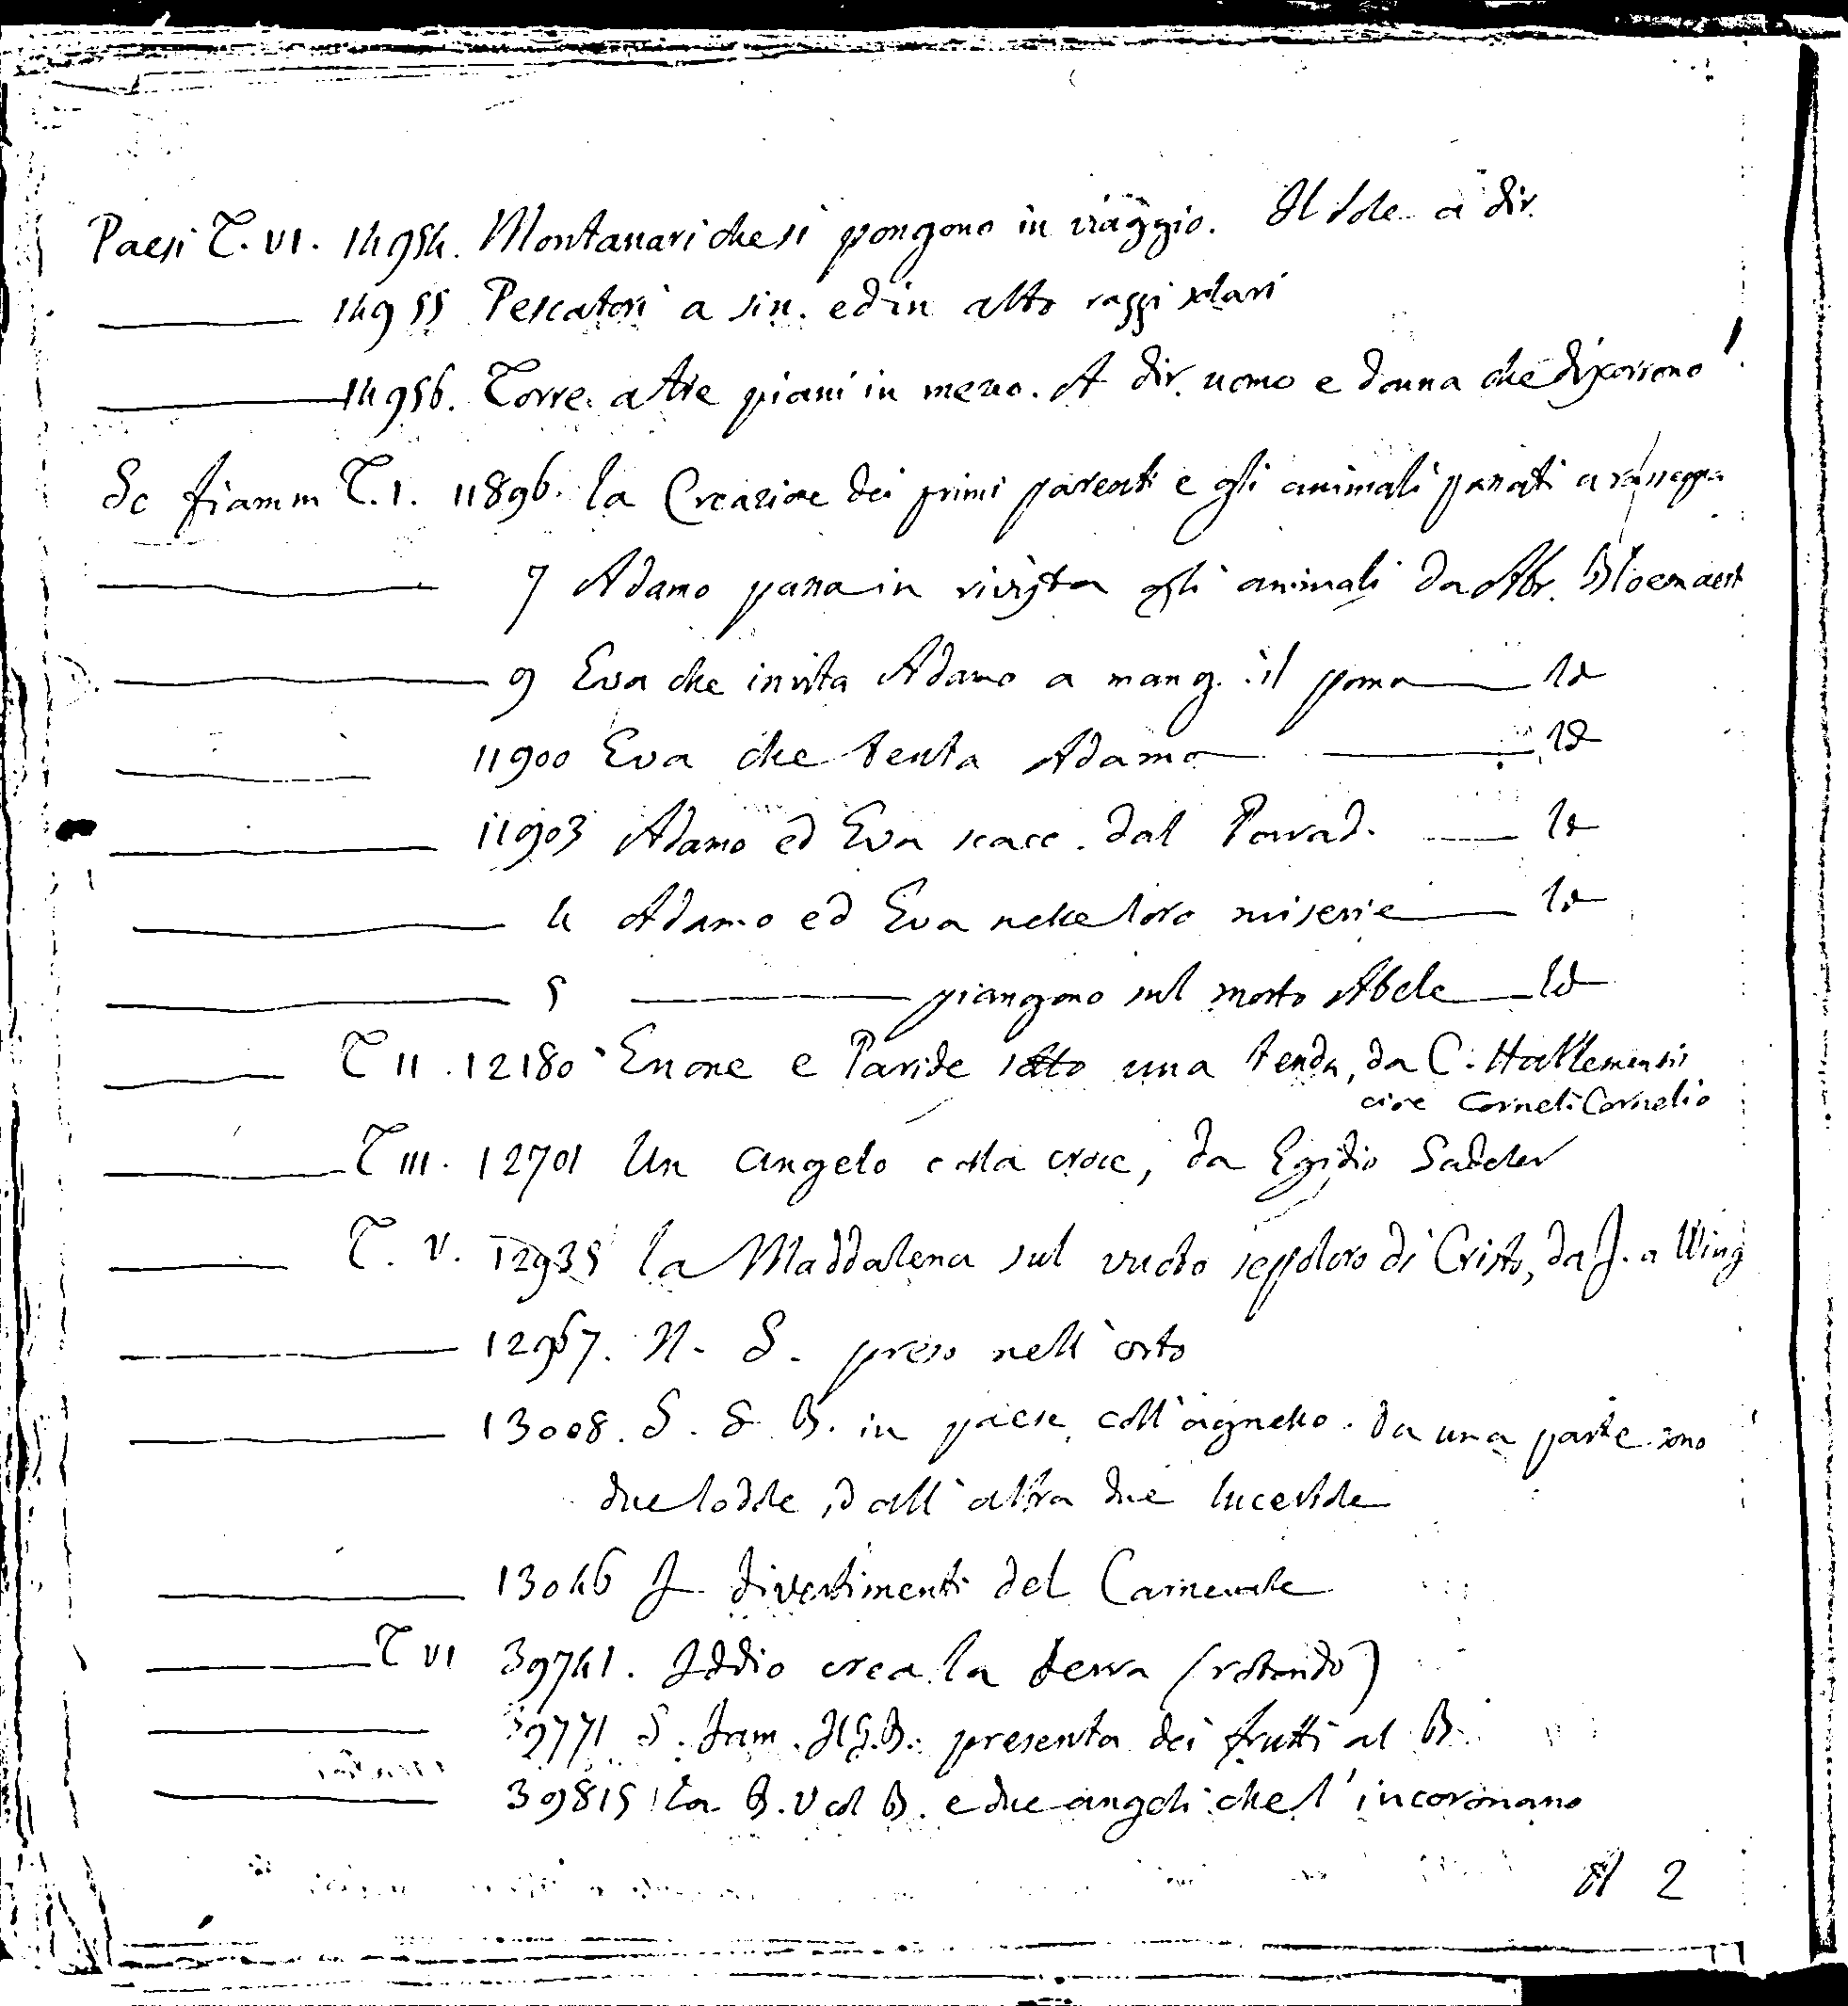 Paesi T. VI. 14954. Montanari che si pongono in viaggio. Il Sole a dir.
14955 Pescatori a sin. ed in alto raggi solari
14956. Torre a tre piani in mezzo. A dir. uomo e donna che discorrono
Sc fiamm T. I. 11896. la Creazione dei primi parenti e gli animali passati a rassegna
7 Adamo passa in rivista gli animali da Abr. Bloemaert
9 Eva che invita Adamo a mang. il pomo Id
11900 Eva che tenta Adamo Id
11903 Adamo ed Eva scacc. dal Parad. Id
4 Adamo ed Eva nelle loro miserie Id
5 piangono sul morto Abele Id
T II. 12180 Enone e Paride sotto una tenda, da C. Harlemensis
cioe Corneli Cornelio
T III. 12701 Un angelo colla croce, da Egidio Sadeler
T. V. 12935 la Maddalena sul vuoto sepolcro di Cristo, da J. a Wing
12967. N. S. preso nell'orto
13008. S. G. B. in paese coll'agnello. Da una parte sono
due lodole, dall'altra due lucertole
13046 I divertimenti del Carnevale
T VI 39741. Iddio crea la terra (rotondo)
39771 S. Fam. Il G. B. presenta dei frutti al B.
39815 la B. V col B. e due angeli che l'incoronano
2